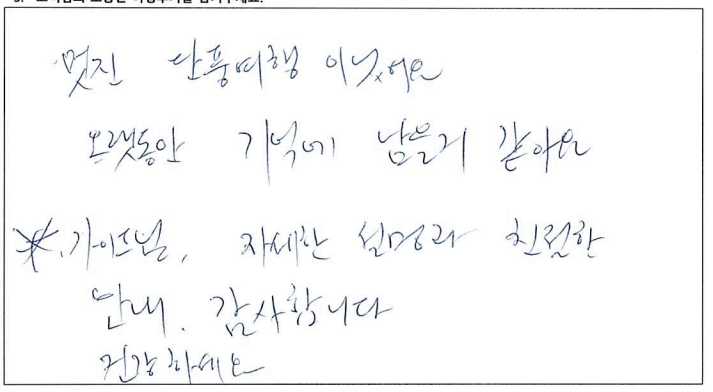 멋진 단풍여행 이였어요
오랫동안 기억에 남을거 같아요
※. 가이드님, 자세한 설명과 친절한
안내. 감사합니다
건강하세요